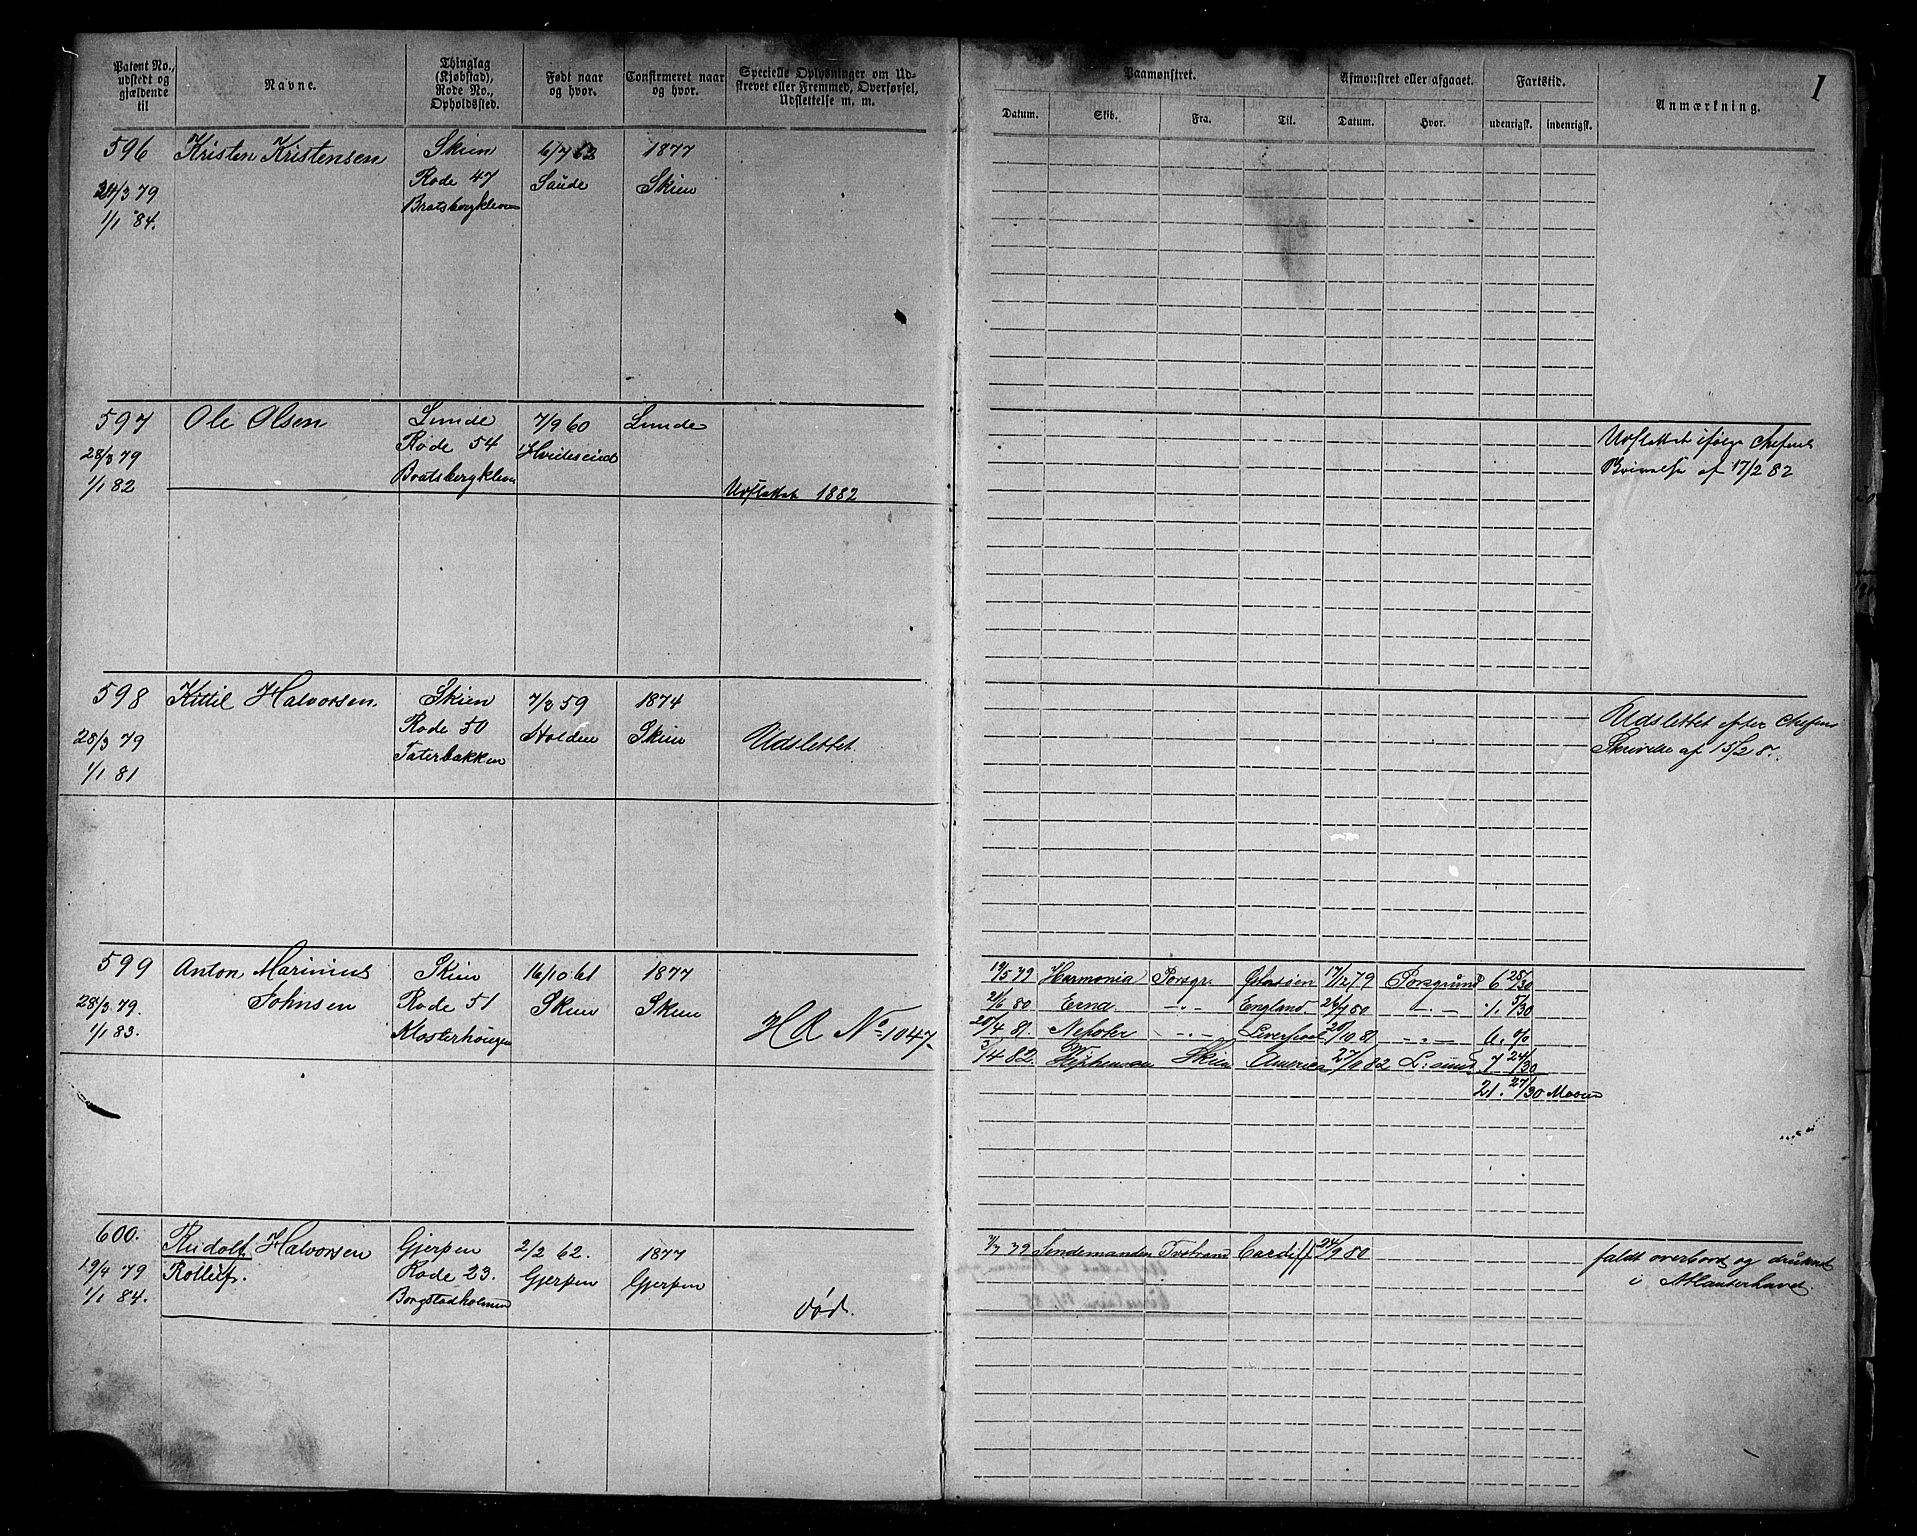 Patent No., udstedt og gjældende til
Navne.
Thinglag (Kjøbstad), Rode No., Opholdssted.
Født naar og hvor.
Confirmeret naar og hvor.
Specielle Oplysninger om Udskrevet eller Fremmed, Overførsel, Udslettelse m. m.
Paamønstret.
Datum.
Skib.
Fra.
Til.
Afmønstret eller afgaaet.
Datum.
Hvor.
Fartstid.
udenrigsk.
indenrigsk.
Anmærkning.
1
596 Kristen Kristensen Skien 6/7 62 1877
3/79 Rode 47 Saude Skien
1/1 84. Bratsbergkleven
597 Ole Olsen Lunde 7/9 60 Lunde
28/3 79 Rode 54 Hvideseid
1/1 82 Bratsbergkleven Udslettet 1882
Udslettet ifølge Chefens
Skrivelse af 17/2 82
598 Kittil Halvorsen Skien 7/3 59 1874
28/3 79 Rode 50 Holden Skien Udslettet.
1/1 81 Taterbakken
Udslettet efter Chefens
Skrivelse af 15/2 8
599 Anton Marinius Skien 16/10 61 1877
28/3 79. Johnsen Rode 51 Skien Skien
1/1 83. Klosterhougen H A No 1047.
19/5 79 Harmonia Porsgr. 17/12 79 Porsgrund 6 28/30
2/6 80 Erna -"- England. 26/7 80 -"- 1. 5/30
20/4 81. -"- Liverpool 20/10 81 -"- 6. %
3/4 82. Skien America 27/10 82 L:sund 7 24/30
21. 27/30 Maaned
600. Rudolf Halvorsen Gjerpen 2/2 62. 1877
19/4 79 Rolluf. Rode 23. Gjerpen Gjerpen
1/1 84. Borgestadholmen død.
79 Sendemanden Tvstrand Cardiff 24/9 80
faldt overbord og druknet
i Atlanterhavet.